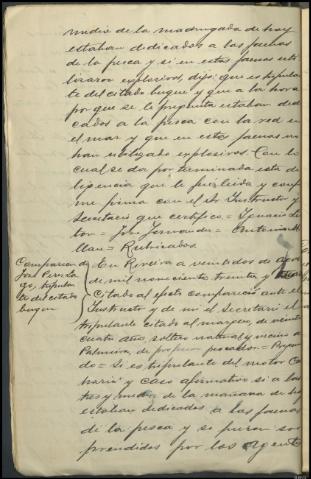 media de la madrugada de hoy
estaban dedicados a las faenas
de la pesca y si en estas faenas uti-
lizaron explosivos, dijo: que es tripulan-
te del citado buque y que a la hora
porque se le pregunta estaban dedi-
cados a la pesca con la red en
el mar y que en estas faenas no
han utilizado explosivos. Con lo
cual se da por terminada esta di-
ligencia que le fue leida y confor-
me firma con el Sr Instructor y
Secretario que certifico.= Ignacio
= José Fernandez = Antonio
= Rubricados
Comparecen de
José
tripulan-
te del citado
buque
En Riveira a veintidos de
de mil novecientos treinta y
Citado al efecto compareció ante el
Instructor y de mi el Secretario el
tripulante citado al margen, de veinte
cuatro años, soltero natural y vecino de
Palmeira, de profesion pescador.=
= Si es tripulante del motor
y caso afirmativo si a las
tres y media de la mañana de hoy
estaban dedicados a las faenas
de la pesca y se fueron sor-
prendidos por los agentes